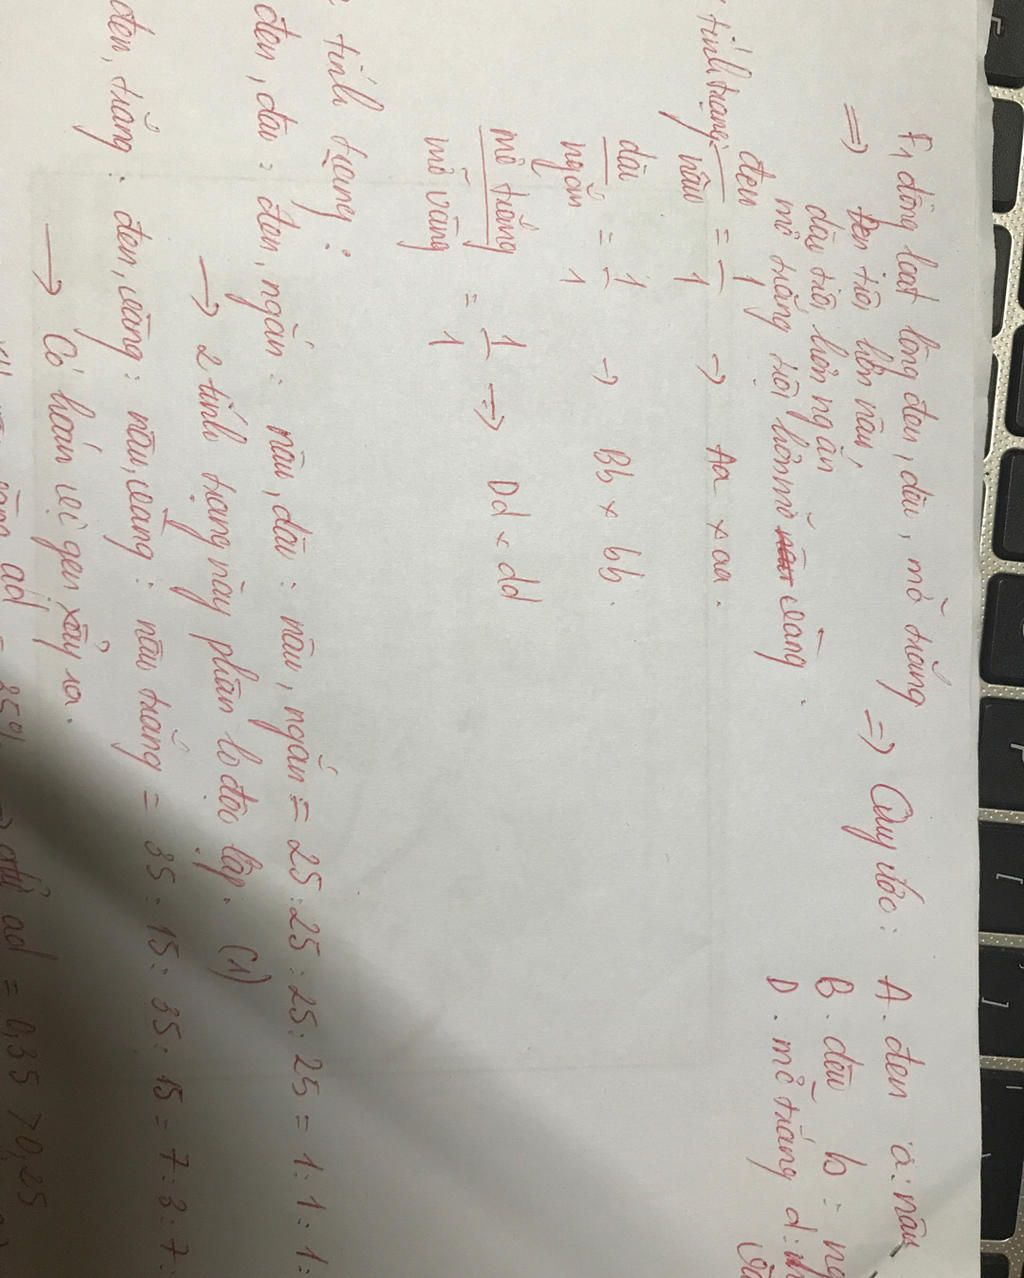 F1 đồng loạt lông đen, dài, mỡ trắng => Quy ước: A. đen a: nâu
=> Đen trội hơn nâu, B. dài b:
dài trội hơn ngắn D. mỡ trắng d:
mỡ trắng trội hơn mỡ vàng.
tính trạng: đen/nâu = 1/1 -> Aa × aa.
dài/ngắn = 1/1 -> Bb × bb.
mỡ trắng/mỡ vàng = 1/1 => Dd × dd
tính trạng:
đen, dài: đen, ngắn: nâu, dài: nâu, ngắn = 25:25:25:25 = 1:1:1:
-> 2 tính trạng này phân li độc lập. (1)
đen, trắng: đen, vàng: nâu, vàng: nâu trắng = 35:15:35:15 = 7:3:7:
-> Có hoán vị gen xảy ra.
ad = 35% => ad = 0,35 > 0,25